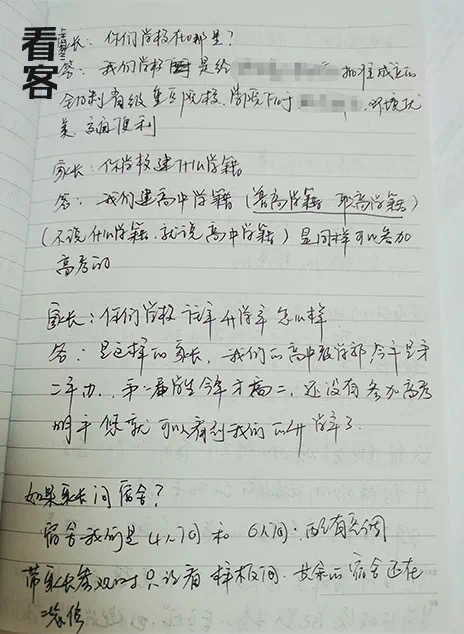 看客
家长：你们学校在哪里？
答：我们学校是经 批准成立的
全日制省级重点院校，学院位于 ，环境优
美，交通便利
家长：你学校建什么学籍
答：我们建高中学籍（普高学籍 职高学籍）
（不说什么学籍，就说高中学籍）是同样可以参加
高考的
家长：你们学校往年升学率怎么样
答：是这样的家长，我们的高中教学部，今年是第
二年办，第一届学生今年才高二，还没有参加高考
明年您就可以看到我们的升学率了.
如果家长问宿舍？
宿舍我们是4人间和6人间；都有空调
带家长参观时只说看样板间.其余的宿舍还在
装修